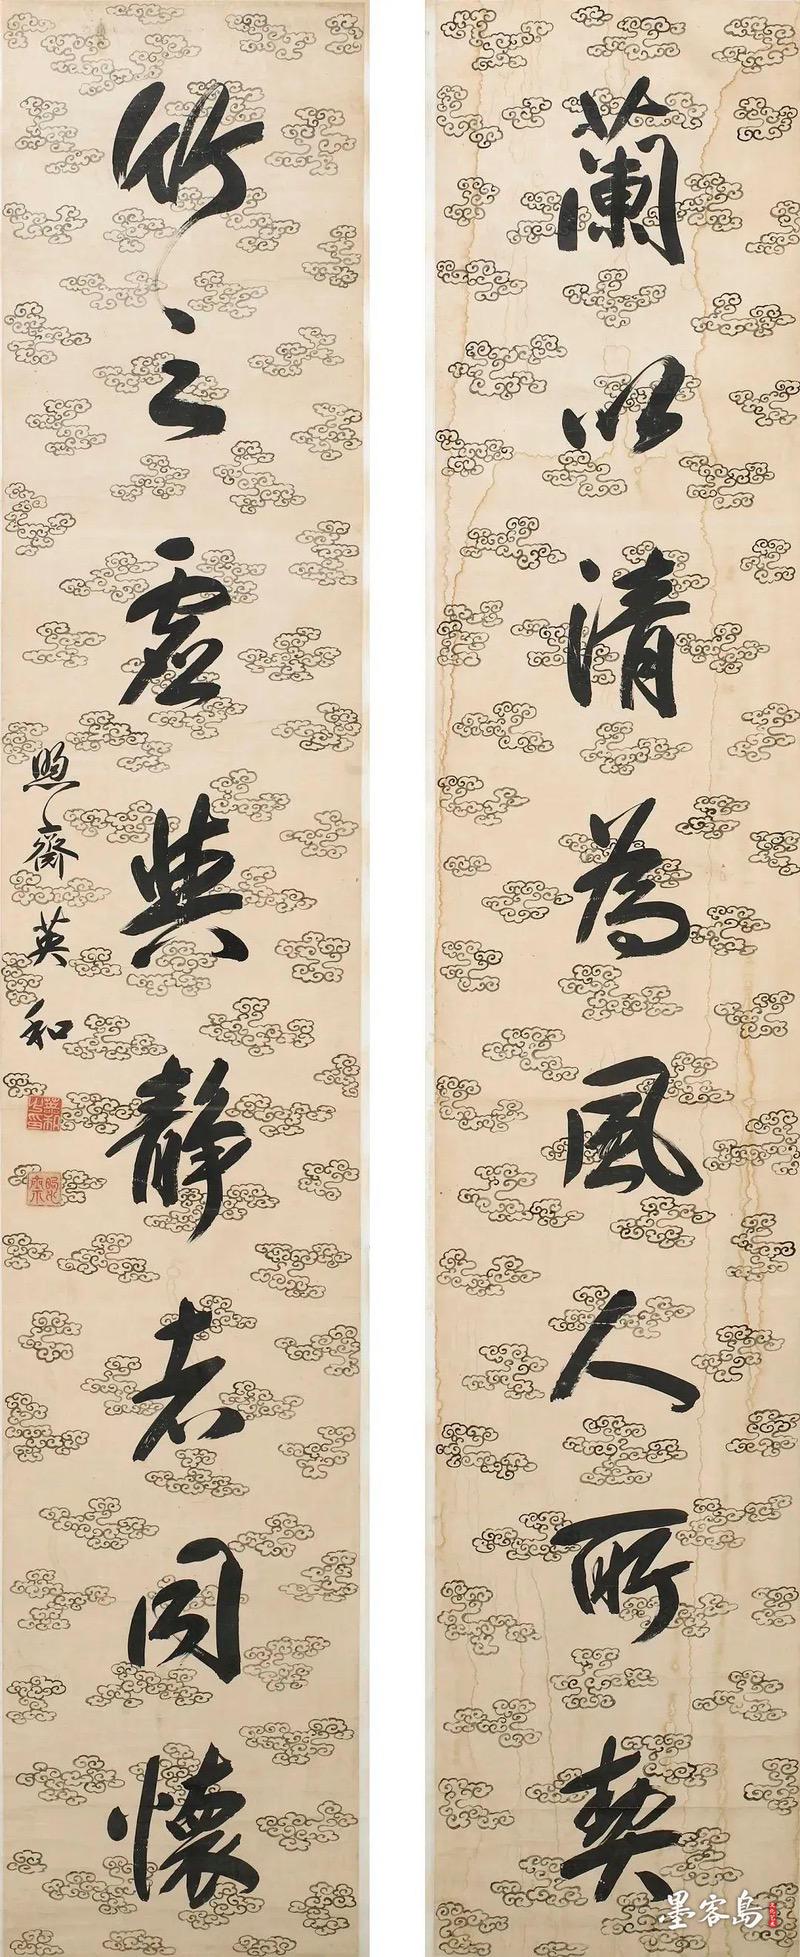 蘭以清為風人所契
竹之虛與静者同懷
煦齋英和
墨客島